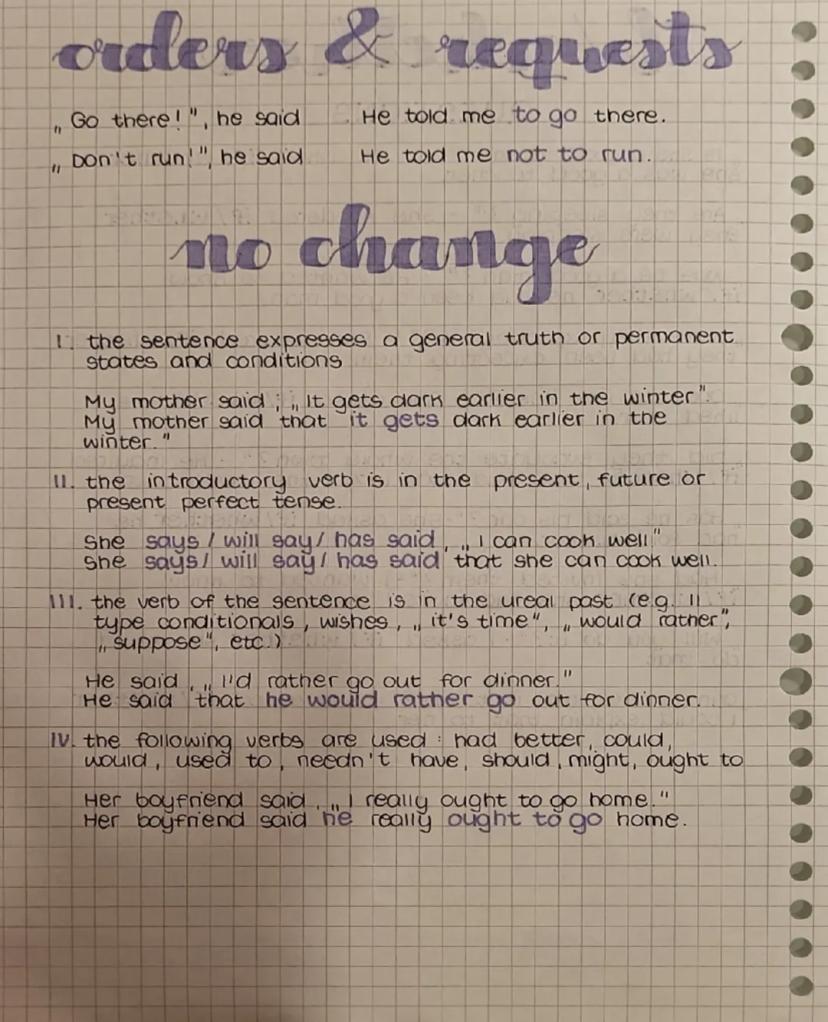 orders & requests
„Go there!", he said He told me to go there.
„Don't run!", he said He told me not to run.
no change
I. the sentence expresses a general truth or permanent
states and conditions
My mother said ; „It gets dark earlier in the winter".
My mother said that it gets dark earlier in the
winter."
II. the introductory verb is in the present, future or
present perfect tense.
She says / will say / has said, „I can cook well"
She says / will say / has said that she can cook well.
III. the verb of the sentence is in the ureal past (e.g. II
type conditionals, wishes, „it's time", „would rather",
„suppose", etc.)
He said, „I'd rather go out for dinner."
He said that he would rather go out for dinner.
IV. the following verbs are used: had better, could,
would, used to, needn't have, should, might, ought to
Her boyfriend said, „I really ought to go home."
Her boyfriend said he really ought to go home.